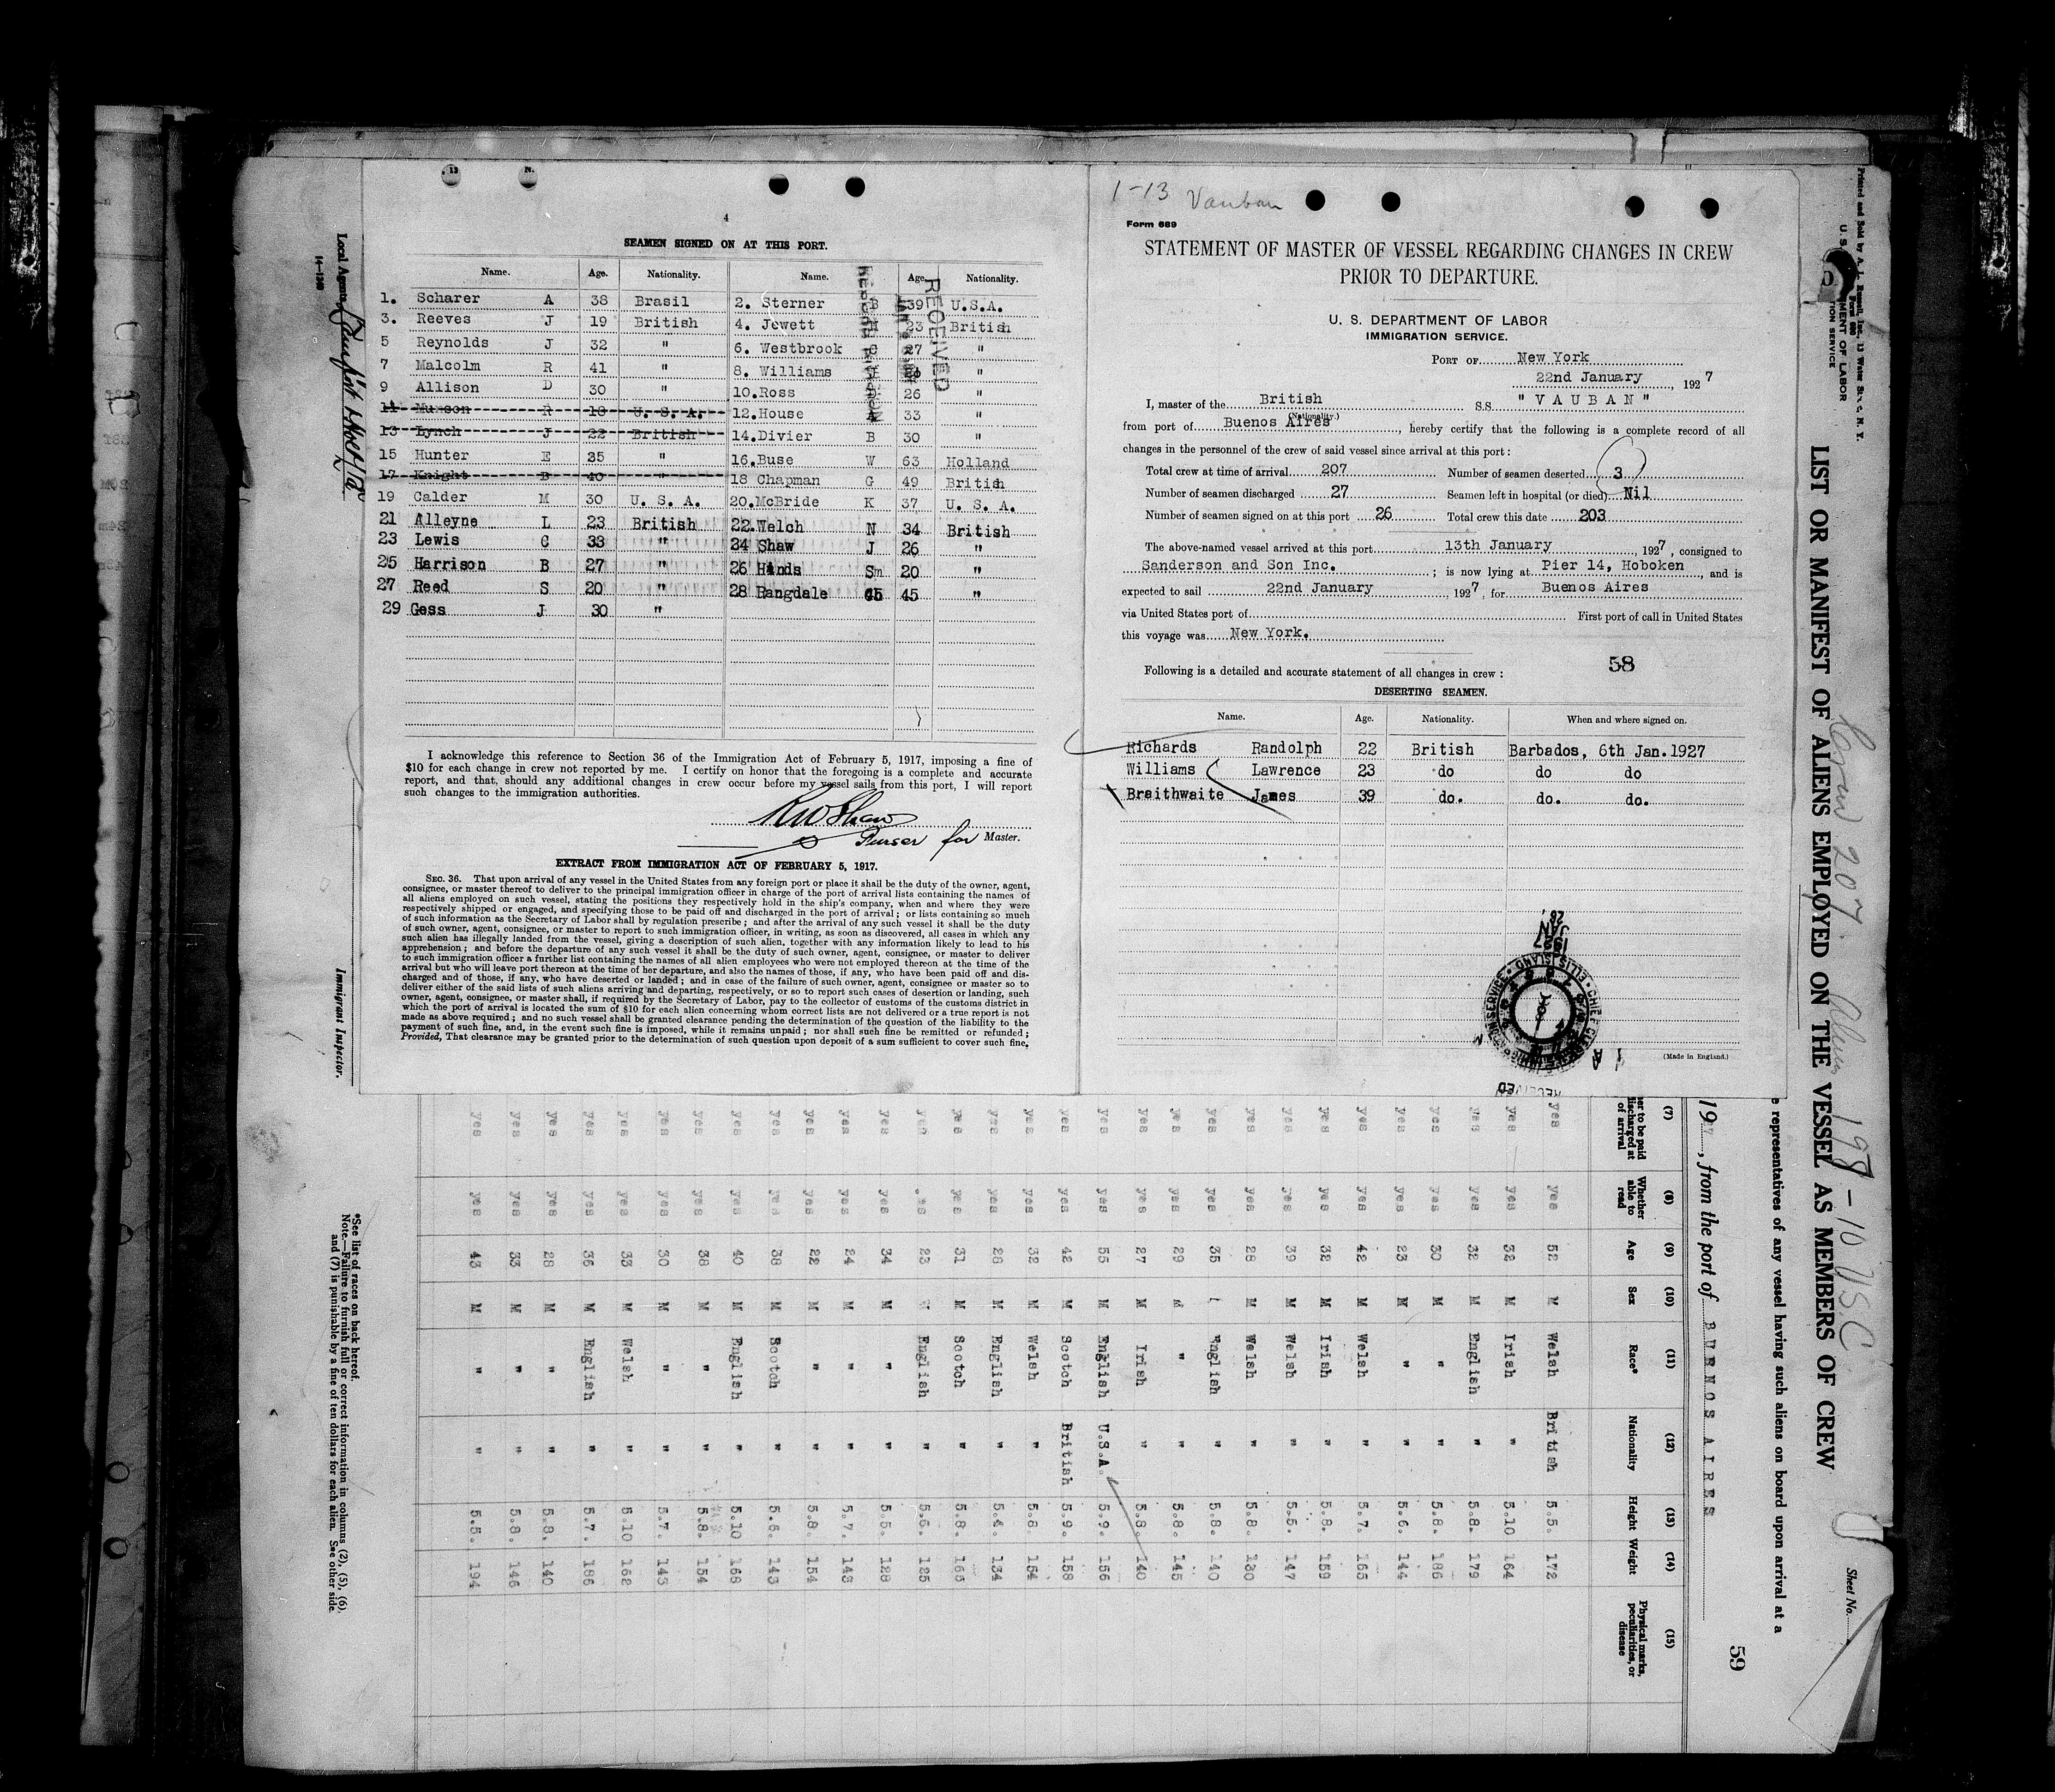 4
SEAMEN SIGNED ON AT THIS PORT.
Name. Age. Nationality. Name. Age. Nationality.
1. Scharer A 38 Brasil 2. Sterner B 39 U.S.A.
3. Reeves J 19 British 4. Jewett 23 British
5 Reynolds J 32 " 6. Westbrook C 27 "
7 Malcolm R 41 " 8. Williams "
9 Allison D 30 " 10. Ross 26 "
11 Munson R 18 U. S. A. 12. House A 33 "
13 Lynch J 22 British 14. Divier B 30 "
15 Hunter E 35 " 16. Buse W 63 Holland
17 Knight B 40 " 18 Chapman G 49 British
19 Calder M 30 U. S. A. 20. McBride K 37 U. S. A.
21 Alleyne L 23 British 22. Welch N 34 British
23 Lewis C 33 " 24 Shaw J 26 "
25 Harrison B 27 " 26 Hinds Sm 20 "
27 Reed S 20 " 28 Rangdale 45 "
29 Gess J 30 "
RECEIVED
I acknowledge this reference to Section 36 of the Immigration Act of February 5, 1917, imposing a fine of
$10 for each change in crew not reported by me. I certify on honor that the foregoing is a complete and accurate
report, and that, should any additional changes in crew occur before my vessel sails from this port, I will report
such changes to the immigration authorities.
Purser for Master.
EXTRACT FROM IMMIGRATION ACT OF FEBRUARY 5, 1917.
SEC. 36. That upon arrival of any vessel in the United States from any foreign port or place it shall be the duty of the owner, agent,
consignee, or master thereof to deliver to the principal immigration officer in charge of the port of arrival lists containing the names of
all aliens employed on such vessel, stating the positions they respectively hold in the ship's company, when and where they were
respectively shipped or engaged, and specifying those to be paid off and discharged in the port of arrival; or lists containing so much
of such information as the Secretary of Labor shall by regulation prescribe; and after the arrival of any such vessel it shall be the duty
of such owner, agent, consignee, or master to report to such immigration officer, in writing, as soon as discovered, all cases in which any
such alien has illegally landed from the vessel, giving a description of such alien, together with any information likely to lead to his
apprehension; and before the departure of any such vessel it shall be the duty of such owner, agent, consignee, or master to deliver
to such immigration officer a further list containing the names of all alien employees who were not employed thereon at the time of the
arrival but who will leave port thereon at the time of her departure, and also the names of those, if any, who have been paid off and dis-
charged and of those, if any, who have deserted or landed; and in case of the failure of such owner, agent, consignee or master so to
deliver either of the said lists of such aliens arriving and departing, respectively, or so to report such cases of desertion or landing, such
owner, agent, consignee, or master shall, if required by the Secretary of Labor, pay to the collector of customs of the customs district in
which the port of arrival is located the sum of $10 for each alien concerning whom correct lists are not delivered or a true report is not
made as above required; and no such vessel shall be granted clearance pending the determination of the question of the liability to the
payment of such fine, and, in the event such fine is imposed, while it remains unpaid; nor shall such fine be remitted or refunded;
Provided, That clearance may be granted prior to the determination of such question upon deposit of a sum sufficient to cover such fine.
1-13 Vauban
Form 689
STATEMENT OF MASTER OF VESSEL REGARDING CHANGES IN CREW
PRIOR TO DEPARTURE.
U. S. DEPARTMENT OF LABOR
IMMIGRATION SERVICE.
PORT OF New York
22nd January, 1927
I, master of the British S.S. "VAUBAN"
(Nationality.)
from port of Buenos Aires, hereby certify that the following is a complete record of all
changes in the personnel of the crew of said vessel since arrival at this port:
Total crew at time of arrival 207 Number of seamen deserted 3
Number of seamen discharged 27 Seamen left in hospital (or died) Nil
Number of seamen signed on at this port 26 Total crew this date 203
The above-named vessel arrived at this port 13th January, 1927, consigned to
Sanderson and Son Inc.; is now lying at Pier 14, Hoboken, and is
expected to sail 22nd January 1927, for Buenos Aires
via United States port of First port of call in United States
this voyage was New York.
58
Following is a detailed and accurate statement of all changes in crew:
DESERTING SEAMEN.
Name. Age. Nationality. When and where signed on.
Richards Randolph 22 British Barbados, 6th Jan. 1927
Williams Lawrence 23 do do do
Braithwaite James 39 do. do. do.
(Made in England.)
Local Agents
14-1240
Immigrant Inspector.
LIST OR MANIFEST OF ALIENS EMPLOYED ON THE VESSEL AS MEMBERS OF CREW
Crew 207. Aliens 197 - 10 USC
Sheet No.
e representatives of any vessel having such aliens on board upon arrival at a
19, from the port of BUENOS AIRES
59
(7) (8) (9) (10) (11) (12) (13) (14) (15)
er to be paid discharged at of arrival Whether able to read Age Sex Race* Nationality Height Weight Physical marks, peculiarities, or disease
yes yes 52 M Welsh British 5.5. 172
yes yes 32 M Irish " 5.10 164
yes yes 32 M English " 5.8. 179
yes yes 30 M " " 5.8. 186
yes yes 23 M " " 5.6. 144
yes yes 42 M Welsh " 5.7. 165
yes yes 32 M Irish " 5.8. 159
yes yes 39 M Welsh " 5.5. 147
yes yes 28 M Welsh " 5.8. 130
yes yes 35 English " 5.8. 140
yes yes 29 M " " 5.8. 145
yes yes 27 M Irish " 5.8. 140
yes yes 55 M English U.S.A. 5.9. 156
yes yes 42 M Scotch British 5.9. 158
yes yes 32 M Welsh " 5.8. 154
yes yes 28 M English " 5.4. 134
yes yes 31 M Scotch " 5.8. 165
yes yes 23 M English " 5.6. 125
yes yes 34 M " " 5.5. 128
yes yes 24 M " " 5.7. 143
yes yes 22 M " " 5.8. 154
yes yes 38 M Scotch " 5.6. 143
yes yes 40 M English " 5.10 168
yes yes 38 M " " 5.8. 154
yes yes 30 M " " 5.7. 143
yes yes 33 M Welsh " 5.10 162
yes yes 36 M English " 5.7. 186
yes yes 28 M " " 5.8. 140
yes yes 33 M " " 5.8. 146
yes yes 43 M " " 5.5. 194
*See list of races on back hereof.
Note.—Failure to furnish full or correct information in columns (2), (5), (6),
and (7) is punishable by a fine of ten dollars for each alien. See other side.